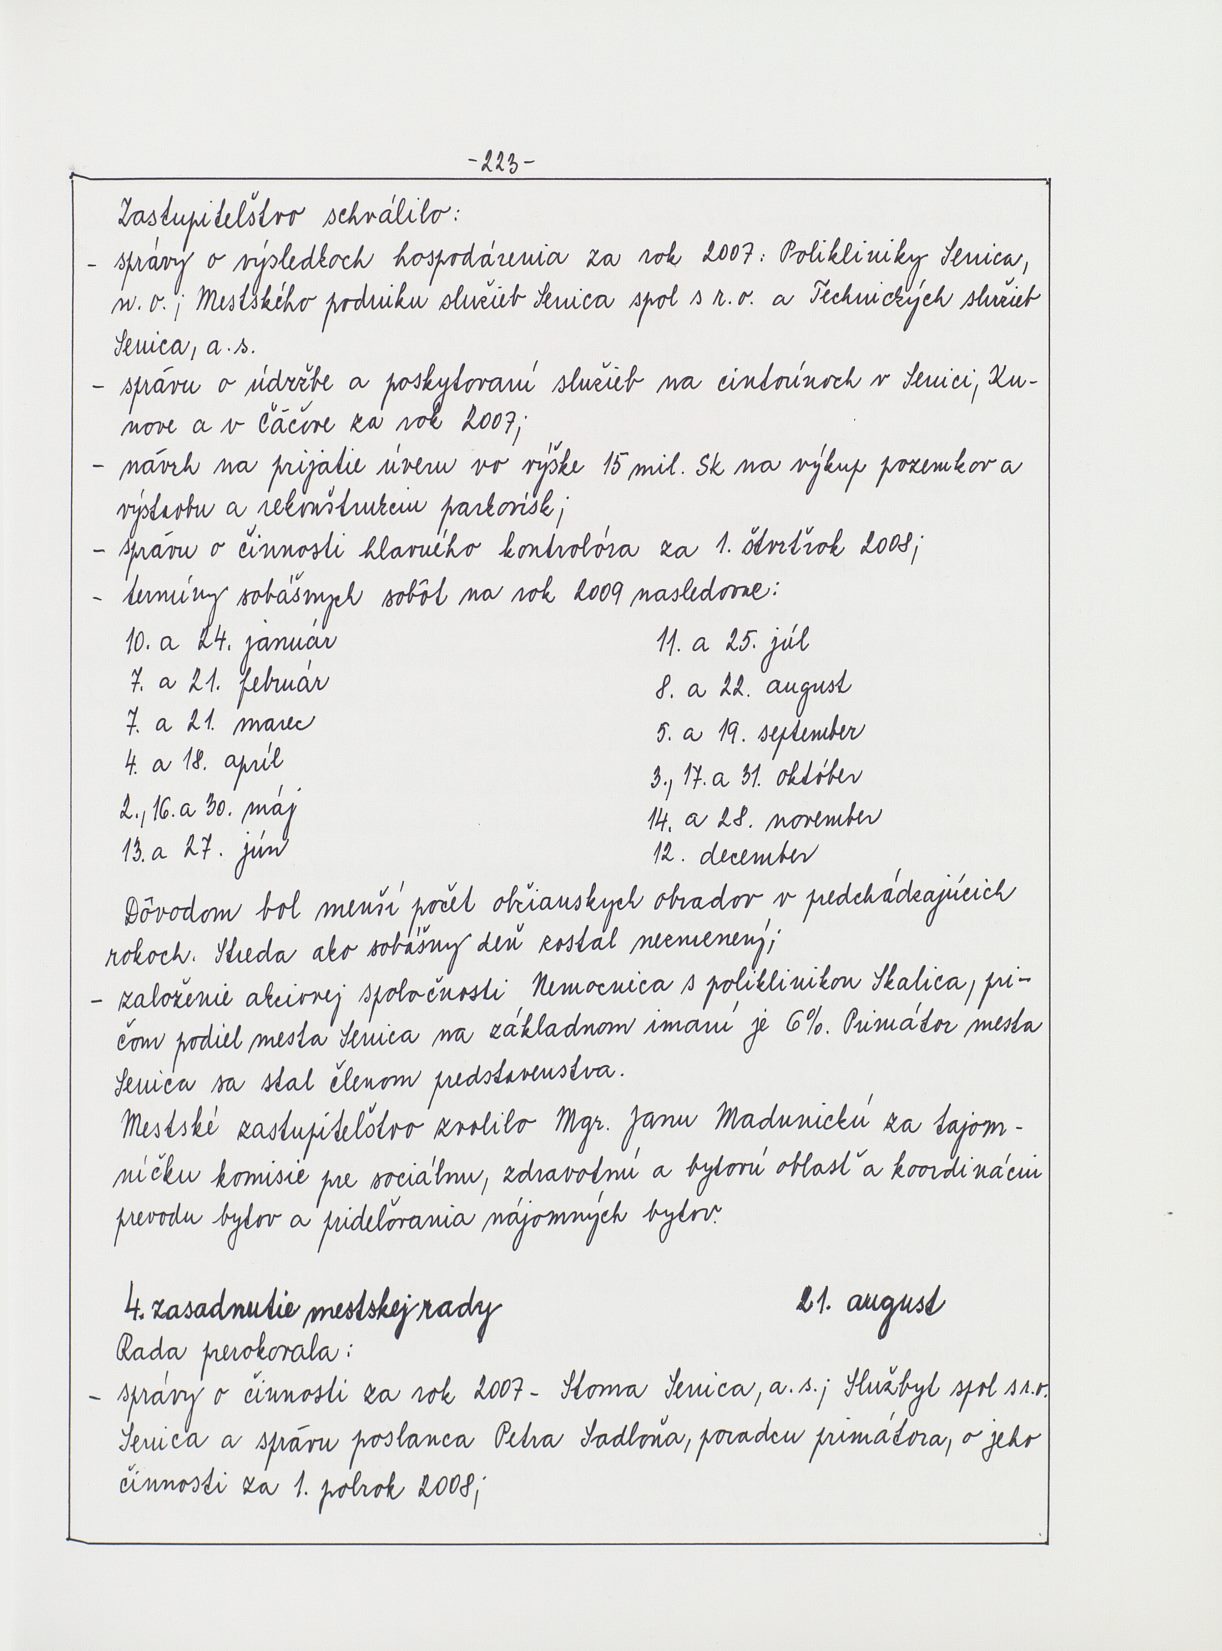 -223-
Zastupiteľstvo schválilo:
- správy o výsledkoch hospodárenia za rok 2007: Polikliniky Senica,
n. o.; Mestského podniku služieb Senica spol s r. o. a Technických služieb
Senica, a. s.
- správu o údržbe a poskytovaní služieb na cintorínoch v Senici, Ku-
nove a v Čáčove za rok 2007;
- návrh na prijatie úveru vo výške 15 mil. Sk na výkup pozemkov a
výstavbu a rekonštrukciu parkovísk;
- správu o činnosti hlavného kontrolóra za 1. štvrťrok 2008;
- termíny sobášnych sobôt na rok 2009 nasledovne:
10. a 24. január 11. a 25. júl
7. a 21. február 8. a 22. august
7. a 21. marec 5. a 19. september
4. a 18. apríl 3., 17. a 31. október
2., 16. a 30. máj 14. a 28. november
13. a 27. jún 12. december
Dôvodom bol menší počet občianskych obradov v predchádzajúcich
rokoch. Streda ako sobášny deň zostal nezmenený;
- založenie akciovej spoločnosti Nemocnica s poliklinikou Skalica, pri-
čom podiel mesta Senica na základnom imaní je 6%. Primátor mesta
Senica sa stal členom predstavenstva.
Mestské zastupiteľstvo zvolilo Mgr. Janu Madunickú za tajom-
níčku komisie pre sociálnu, zdravotnú a bytovú oblasť a koordináciu
prevodu bytov a prideľovania nájomných bytov.
4. zasadnutie mestskej rady 21. august
Rada prerokovala:
- správy o činnosti za rok 2007 - Stoma Senica, a. s.; Službyt spol s r. o.
Senica a správu poslanca Petra Sadloňa, poradcu primátora, o jeho
činnosti za 1. polrok 2008;